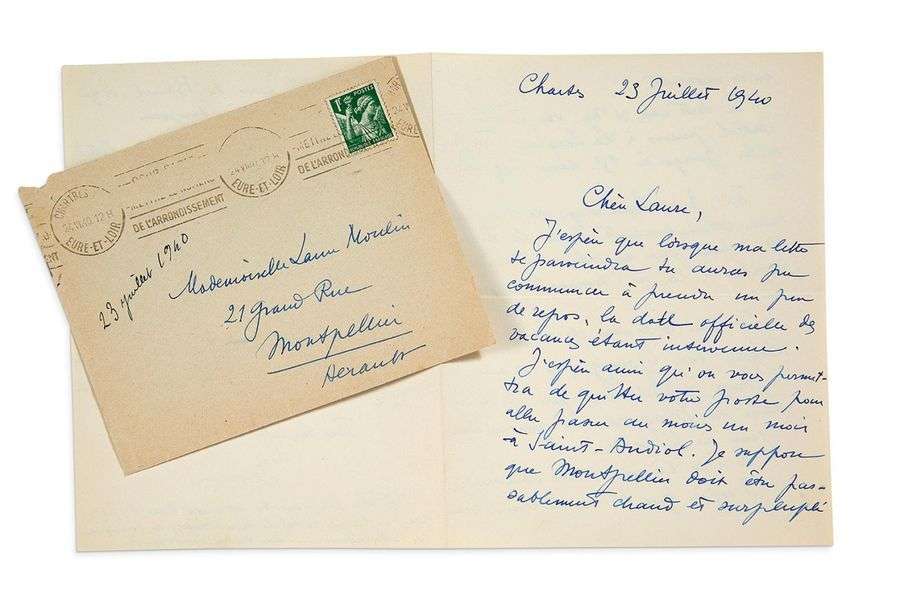 1F POSTES
CHARTRES
24 VII 40 12 H
EURE-ET-LOIR
DE L'ARRONDISSEMENT
EURE-ET-LOIR
DE L'ARROND
23 juillet 1940
Mademoiselle Laure Moulin
21 Grand Rue
Montpellier
Herault
Chartres 23 Juillet 1940
Chère Laure,
J'espère que lorsque ma lettre
te parviendra tu auras pu
commencer à prendre un peu
de repos, la date officielle des
vacances étant intervenue.
J'espère aussi qu'on vous permet-
tra de quitter votre poste pour
aller passer au moins un mois
à Saint-Andiol. Je suppose
que Montpellier doit être pas-
sablement chaud et surpeuplé